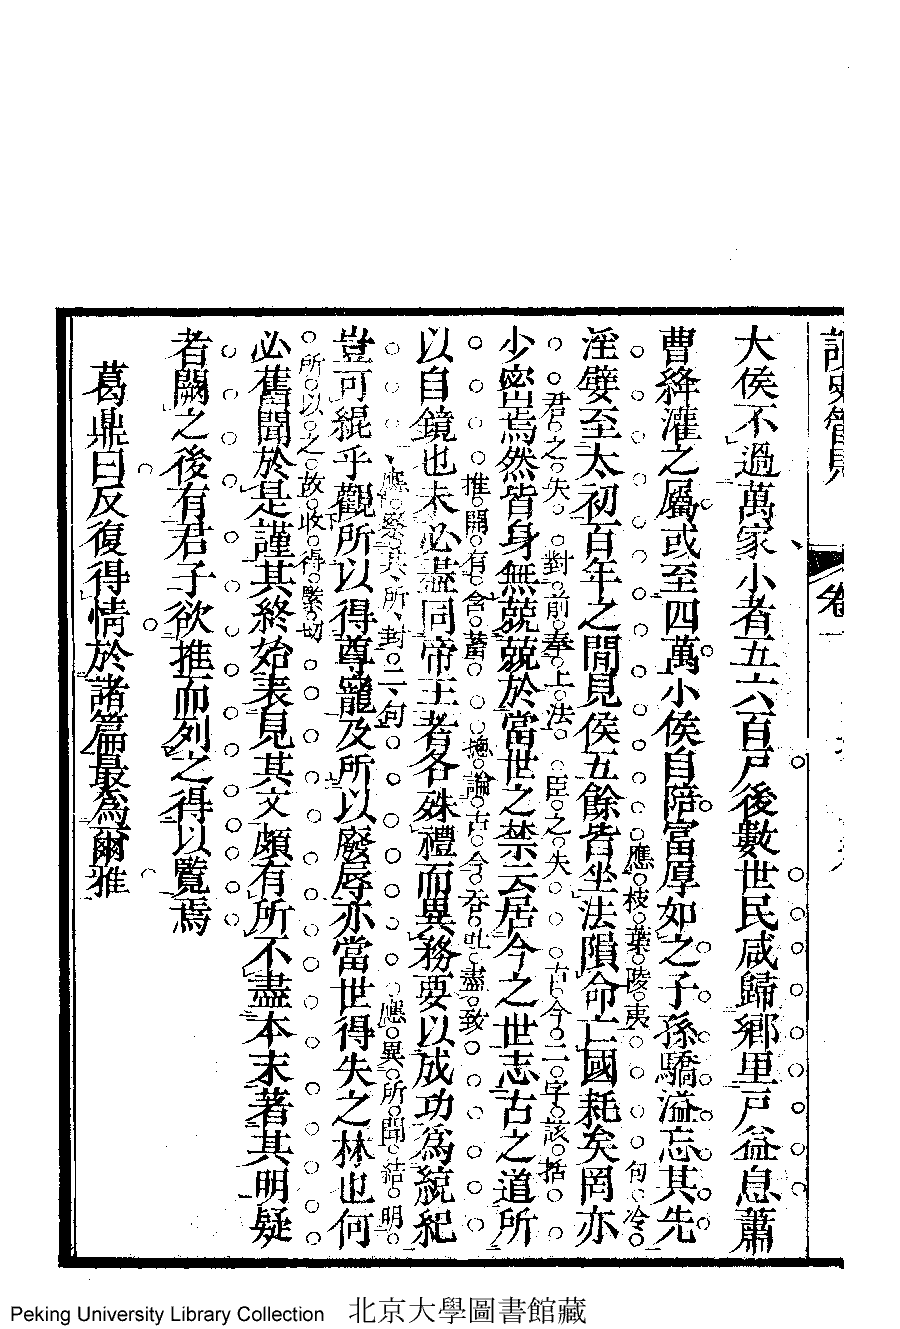 大侯不過萬家小者五六百戶後數世民咸歸鄉里戶益息蕭
曹絳灌之屬或至四萬小侯自陪富厚如之子孫驕溢忘其先
應枝葉陵夷
句冷
淫嬖至太初百年之間見侯五餘皆坐法隕命亡國耗矣罔亦
君之失
對前奉上法
臣之失
古今二字該括
少密焉然皆身無兢兢於當世之禁云居今之世志古之道所
推開有含蓄
總論古今吞吐盡致
以自鏡也未必盡同帝王者各殊禮而異務要以成功為統紀
應察其所
對二句
應異所聞結明
豈可緄乎觀所以得尊寵及所以廢辱亦當世得失之林也何
所以之故收得緊切
必舊聞於是謹其終始表見其文頗有所不盡本末著其明疑
者闕之後有君子欲推而列之得以覽焉
葛鼎曰反復得情於諸篇最為爾雅
卷一
Peking University Library Collection 北京大學圖書館藏